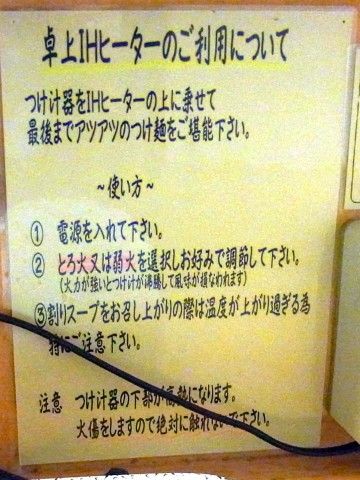 卓上IHヒーターのご利用について
つけ汁器をIHヒーターの上に乗せて
最後までアツアツのつけ麺をご堪能下さい。
~使い方~
① 電源を入れて下さい。
② とろ火又は弱火を選択しお好みで調節して下さい。
(火力が強いとつけ汁が沸騰して風味が損なわれます)
③割りスープをお召し上がりの際は温度が上がり過ぎる為
特にご注意下さい。
注意 つけ汁器の下部が高熱になります。
火傷をしますので絶対に触れないで下さい。